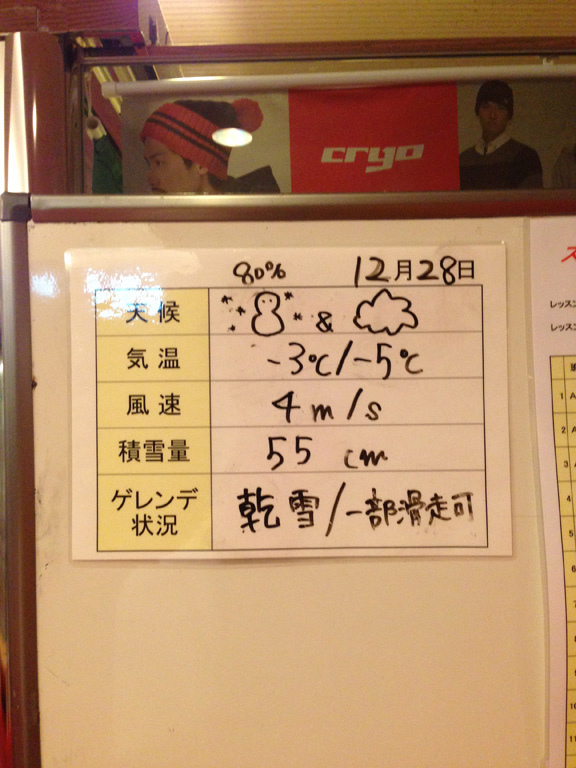 cryo
80% 12月28日
天候 &
気温 -3℃/-5℃
風速 4m/s
積雪量 55cm
ゲレンデ
状況 乾雪/一部滑走可
ス
レッスン
レッスン
1 A
2 A
3
4
5
6
7
8
9
10
11